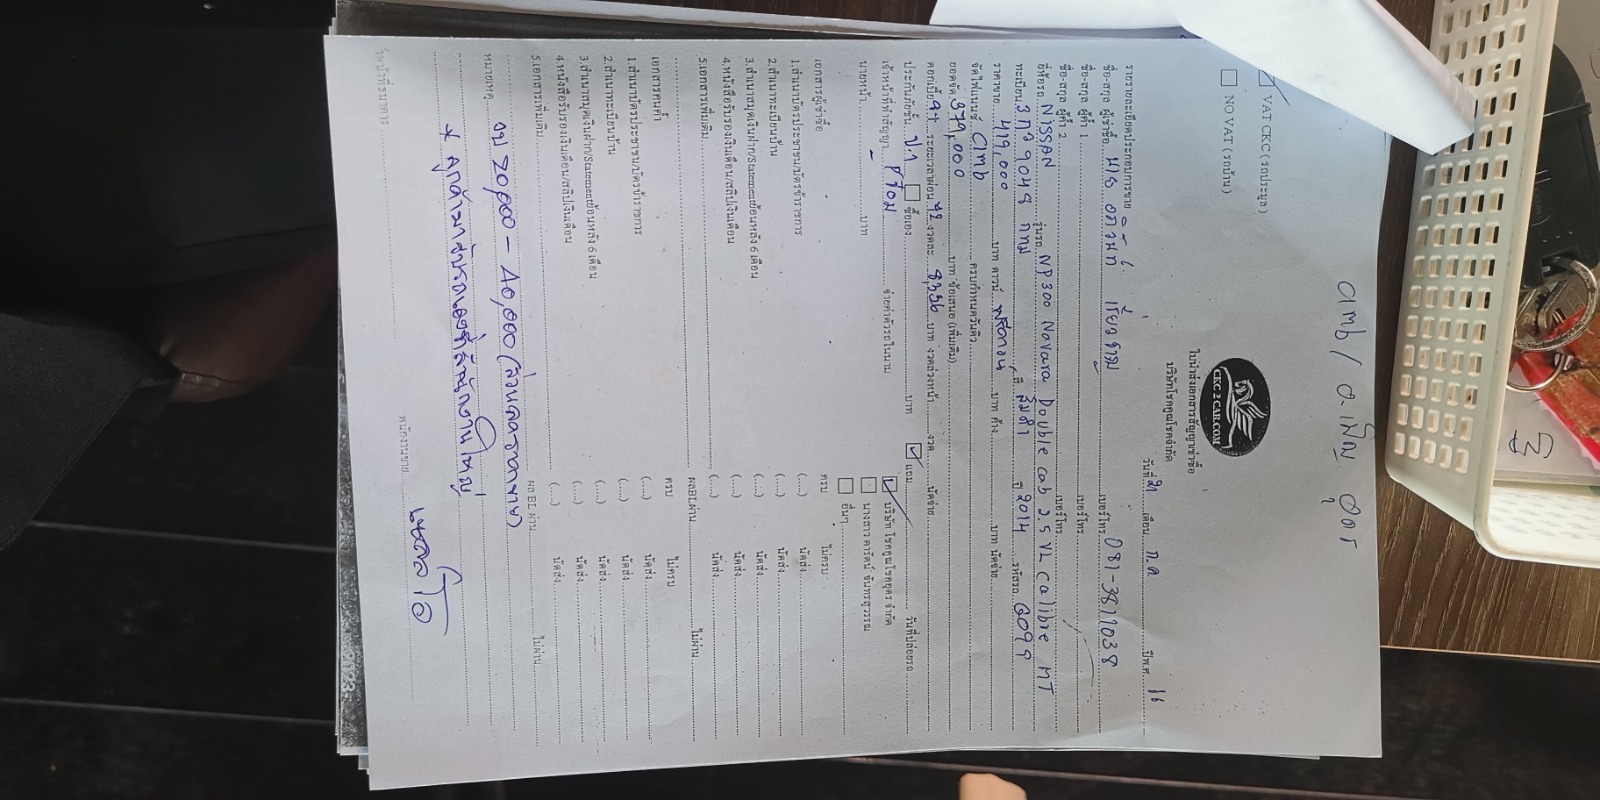 amb / อ.เพ็ญ อุดร
CKC 2 CAR.COM
VAT CKC (รถประมูล)
NO VAT (รถบ้าน)
ใบนำส่งเอกสารสัญญาเช่าซื้อ
บริษัทโชคคูณโชคจำกัด
วันที่ เดือน ก.ค ปีพ.ศ. 66
รายรายละเอียดประกอบการขาย
ชื่อ-สกุล ผู้เช่าซื้อ นาย เบอร์โทร 081-3811038
ชื่อ-สกุล ผู้ค้ำ 1 เบอร์โทร
ชื่อ-สกุล ผู้ค้ำ 2 เบอร์โทร
ยี่ห้อรถ NISSAN รุ่นรถ NP300 Navara Double cab 2.5 VL Calibre MT
ทะเบียน 3กว 9048 กทม สี สีมดำ ปี 2014 รหัสรถ G099
ราคาขาย 419,000 บาท ดาวน์ ฟรีดาวน์ บาท ค้าง บาท นัดจ่าย
จัดไฟแนนซ์ Cimb ครบกำหนดวันดิว
ยอดจัด 379,000 บาท ข้อเสนอ (เพิ่มเติม)
ดอกเบี้ย ระยะเวลาผ่อน 72 งวดละ 8,336 บาท งวดล่วงหน้า งวด นัดจ่าย
ประกันภัยชั้น ป.1 ซื้อเอง บาท แถม วันที่ปล่อยรถ
เจ้าหน้าที่ทำสัญญา จ่ายค่าตัวรถในนาม บริษัท โชคคูณโชคอุดร จำกัด
นายหน้า - บาท นางสาว ดารัตน์ จันทรสุวรรณ
อื่นๆ
เอกสารผู้เช่าซื้อ ครบ ไม่ครบ
1.สำเนาบัตรประชาชน/บัตรข้าราชการ (....) นัดส่ง
2.สำเนาทะเบียนบ้าน (....) นัดส่ง
3.สำเนาสมุดเงินฝาก/Statementย้อนหลัง 6 เดือน (....) นัดส่ง
4.หนังสือรับรองเงินเดือน/สลิปเงินเดือน (....) นัดส่ง
5.เอกสารเพิ่มเติม (....) นัดส่ง
ผลBLผ่าน ไม่ผ่าน
เอกสารคนค้ำ ครบ ไม่ครบ
1.สำเนาบัตรประชาชน/บัตรข้าราชการ (....) นัดส่ง
2.สำเนาทะเบียนบ้าน (....) นัดส่ง
3.สำเนาสมุดเงินฝาก/Statementย้อนหลัง 6 เดือน (....) นัดส่ง
4.หนังสือรับรองเงินเดือน/สลิปเงินเดือน (....) นัดส่ง
5.เอกสารเพิ่มเติม (....) นัดส่ง
ผล BL ผ่าน ไม่ผ่าน
หมายเหตุ งบ 20,000 - 40,000 (ส่วนลดราคาขาย)
* ลูกค้ามารับรถเองที่สำนักงานใหญ่
เจ้าหน้าที่ธนาคาร พนักงานขาย